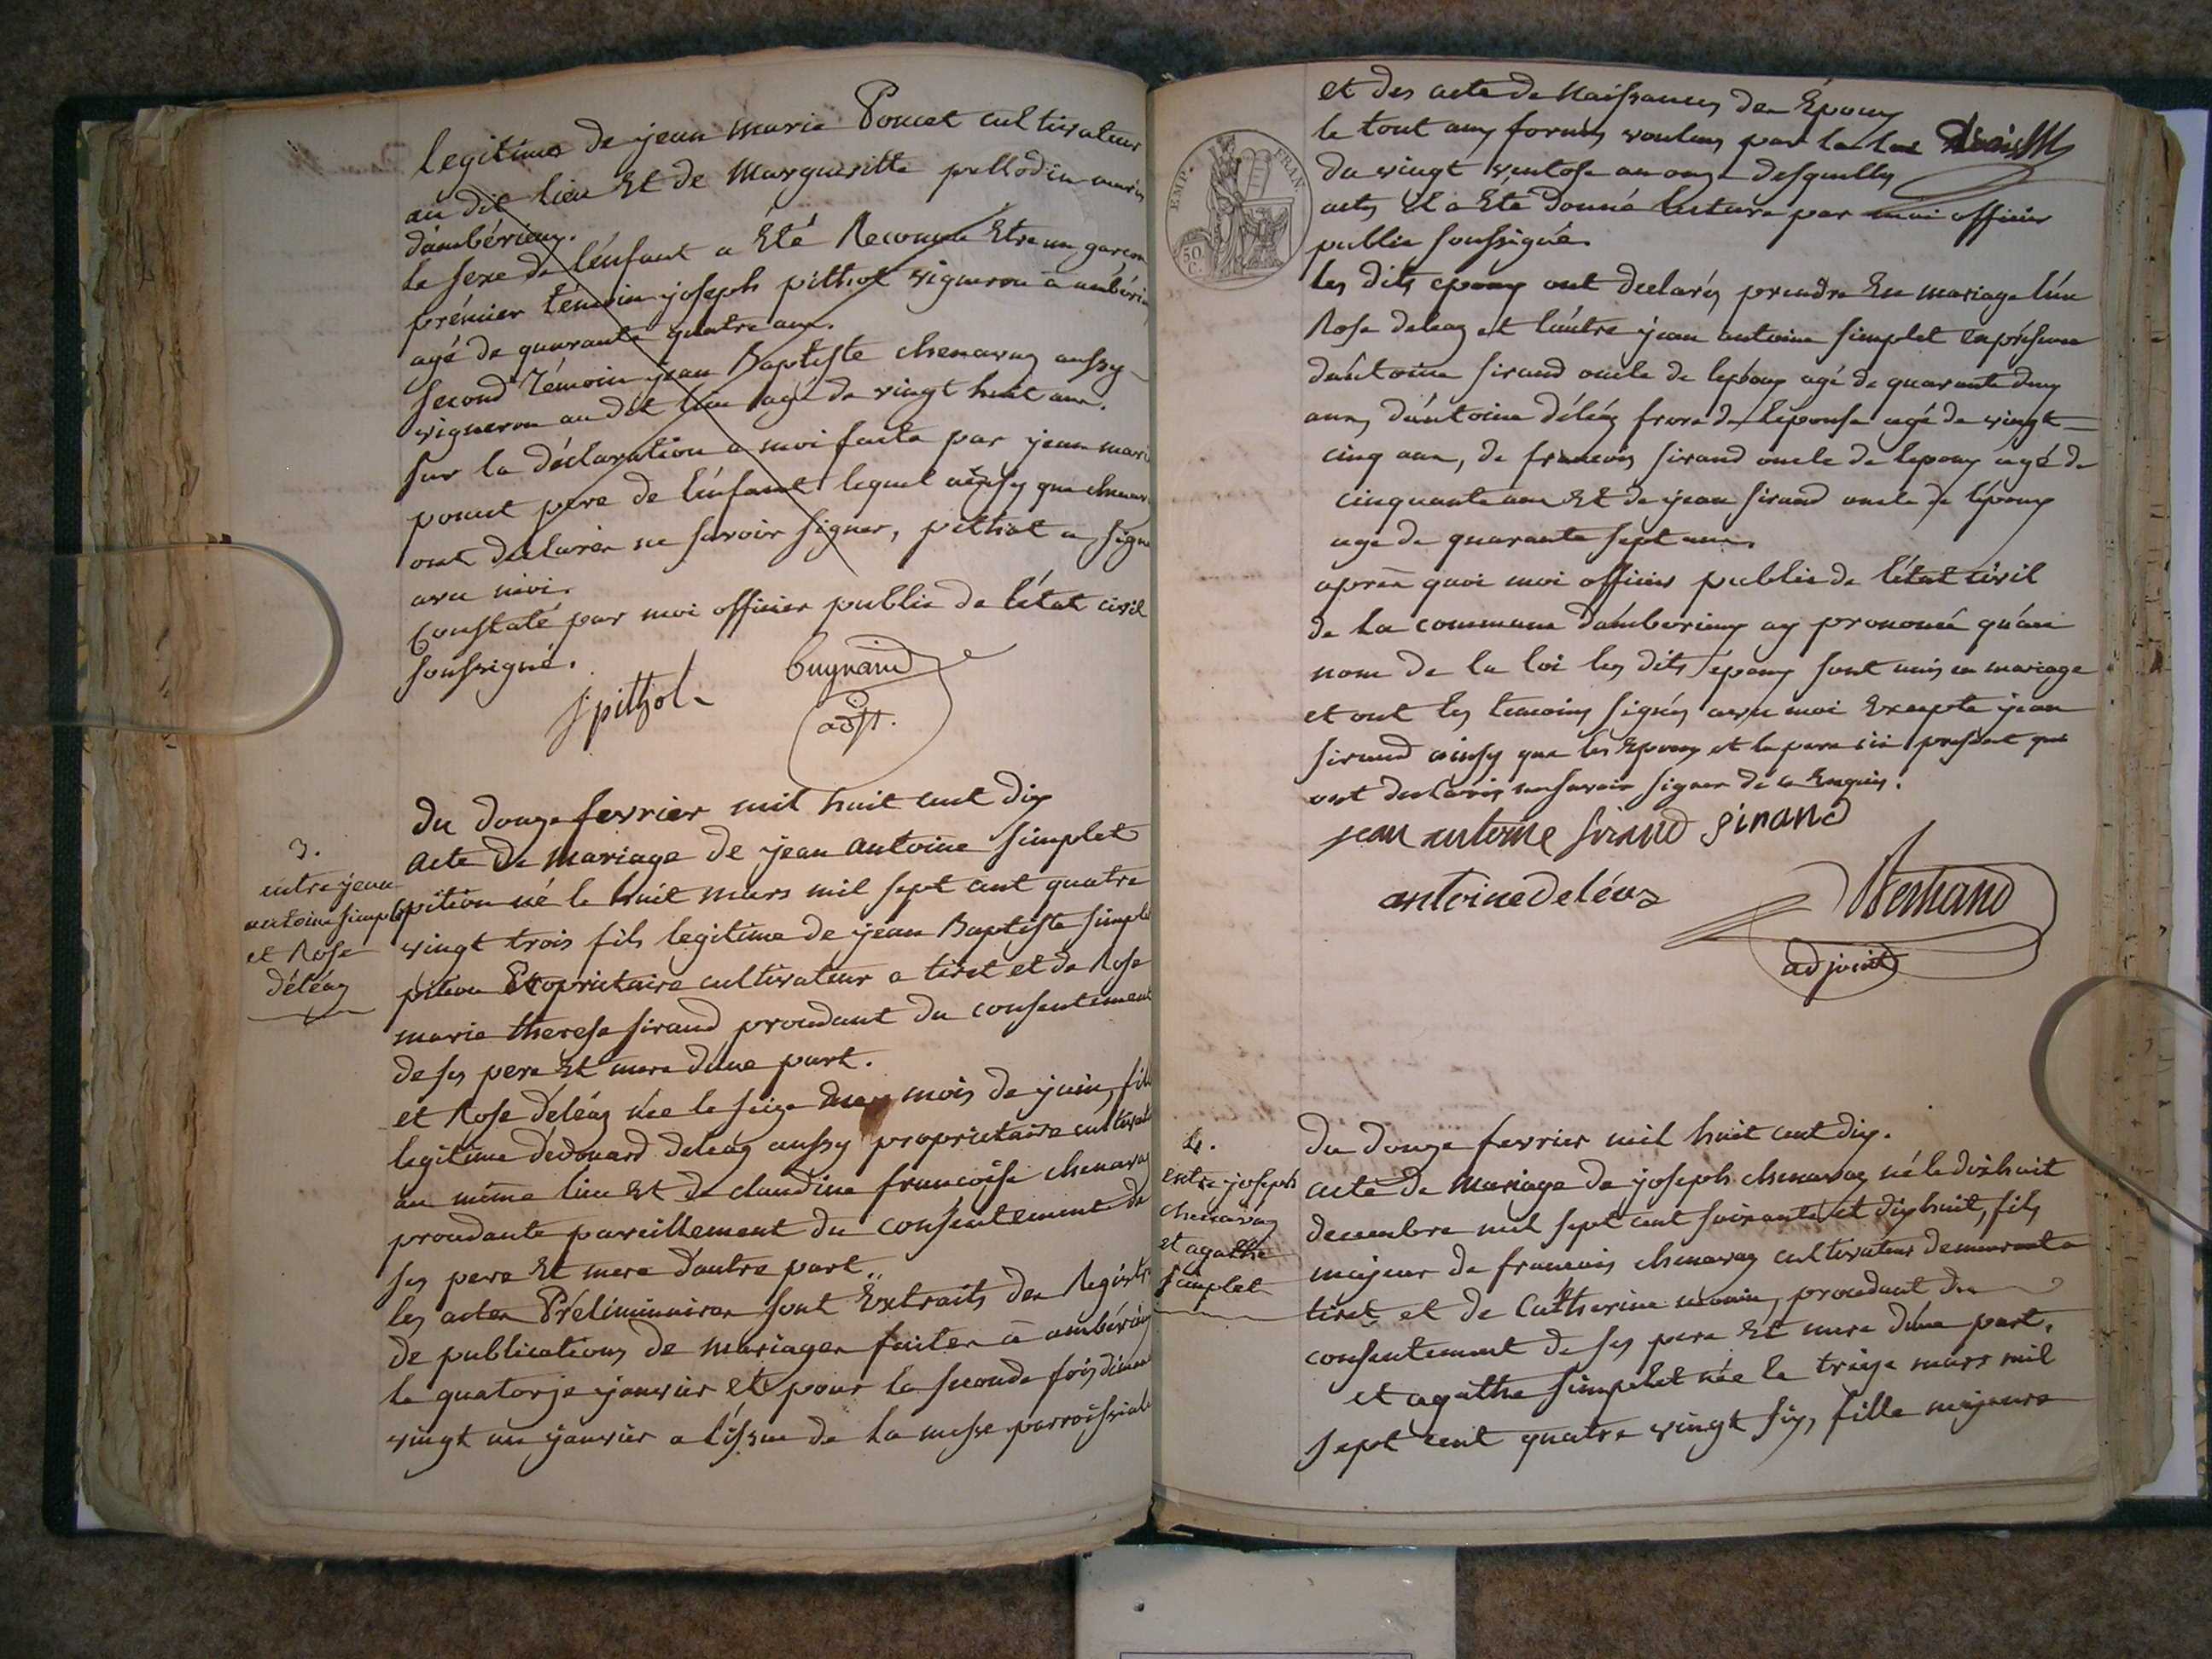 legitime de jean marie Poncet cultivateur
au dit lieu Et de Margueritte pellodin
d'ambérieux.
le sexe de l'enfant a Eté Reconnu Etre un garçon
prémier témoin joseph pithol vigneron à
agé de quarante quatre ans.
second Témoin jean Baptiste chenavaz aussy
vigneron au dit lieu agé de vingt huit ans.
sur la déclaration a moi faite par jean marie
poncet pere de l'enfant lequel ainsy que
ont declarer ne savoir signer, pithol a signé
avec moi.
Constaté par moi officier public de l'état civil
soussigné.
J pithol
Cugnard
adjt.
Du douze fevrier mil huit cent dix
3.
entre jean
antoine simplet
et Rose
déléaz
acte de Mariage de jean antoine simplet
pition né le huit mars mil sept cent quatre
vingt trois fils legitime de jean Baptiste simplet
pition Propriétaire cultivateur a tiret et de Rose
marie therese sirand procedant du consentement
de ses pere Et mere d'une part.
et Rose déléaz née le seize mois de juin, fille
legitime d'edouard deleaz aussy proprietaire cultivateur
au même lieu Et de claudine francoise chenavaz
procedante pareillement du consentement de
ses pere Et mere d'autre part.
les actes Préliminaires sont Extraits des Registres
de publications de mariages faites à ambérieux
le quatorze janvier et pour la seconde fois
vingt un janvier a l'issue de la messe parroissiale
EMP. FRAN.
50 C.
et des acte de Naissances des Epoux
le tout aux formes voulues par la loi
du vingt ventose an onze desquelles
actes il a Eté donné lecture par moi officier
public soussigné.
les dits epoux ont declarés prendre En mariage l'un
Rose deleaz et l'autre jean antoine simplet En présence
d'antoine sirand oncle de l'epoux agé de quarante deux
ans, d'antoine déléaz frere de l'epouse agé de vingt
cinq ans, de francois sirand oncle de l'epoux agé de
cinquante ans Et de jean sirand oncle de l'époux
age de quarante sept ans.
après quoi moi officier public de l'état civil
de la commune d'amberieux ay prononcé qu'au
nom de la loi les dits epoux sont unis en mariage
et ont les temoins signés avec moi Excepté jean
sirand ainsy que les Epoux et le pere ici present qui
ont declarés ne savoir signer de ce Enquis.
jean antoine sirand Sirand
antoine deléaz
Bertrand
adjoint
4.
Entre joseph
chenavaz
et agathe
simplet
du douze fevrier mil huit cent dix.
acte de Mariage de joseph chenavaz né le dixhuit
decembre mil sept cent soixante et dixhuit, fils
majeur de francois chenavaz cultivateur demeurant a
tiret et de Catherine procedant du
consentement de ses pere Et mere d'une part,
et agathe simplet née le treize mars mil
sept cent quatre vingt six, fille majeure